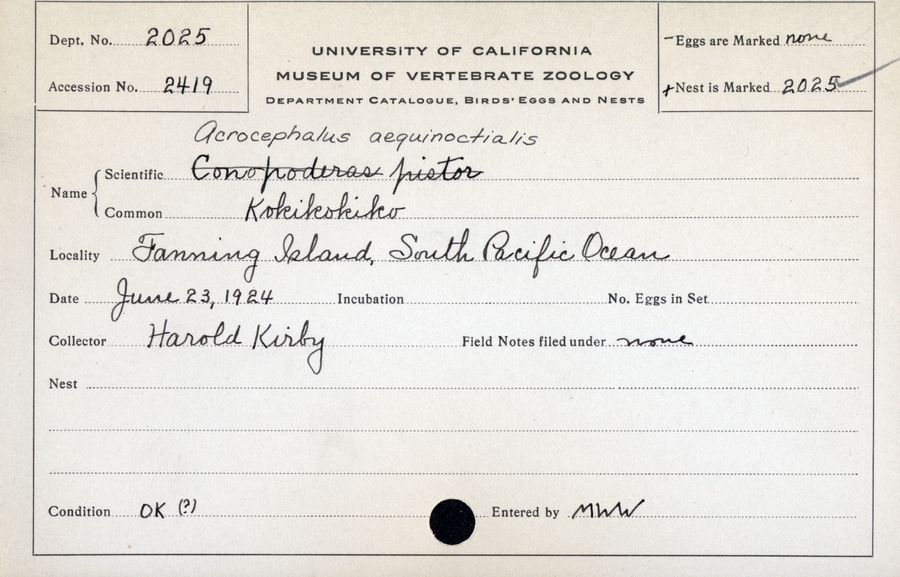 Dept. No. 2025
Accession No. 2419
UNIVERSITY OF CALIFORNIA
MUSEUM OF VERTEBRATE ZOOLOGY
DEPARTMENT CATALOGUE, BIRDS' EGGS AND NESTS
-Eggs are Marked none
+Nest is Marked 2025
Acrocephalus aequinoctialis
Name
Scientific Conopoderas pistor
Common Kokikokiko
Locality Fanning Island, South Pacific Ocean
Date June 23, 1924 Incubation No. Eggs in Set
Collector Harold Kirby Field Notes filed under none
Nest
Condition OK (?) Entered by MWW